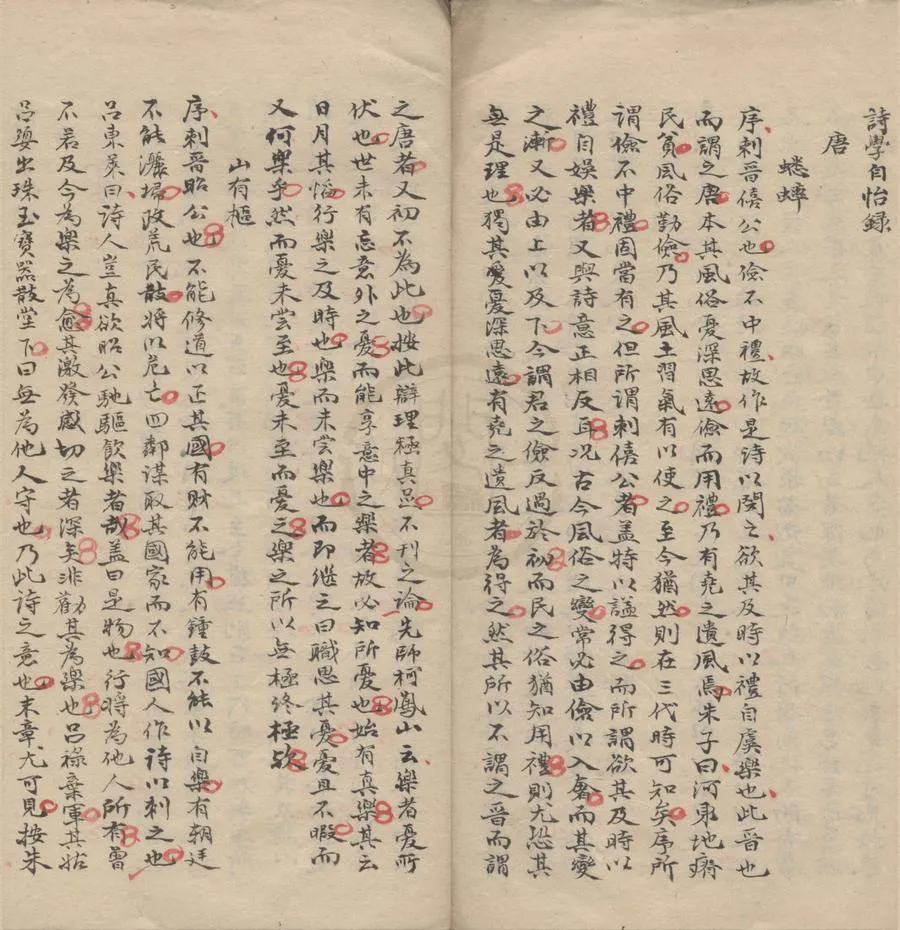 詩學自怡録
唐
蟋蟀
序刺晉僖公也儉不中禮故作是詩以閔之欲其及時以禮自虞樂也此晉也
而謂之唐本其風俗憂深思遠儉而用禮乃有堯之遺風焉朱子曰河東地瘠
民貧風俗勤儉乃其風土習氣有以使之至今猶然則在三代時可知矣序所
謂儉不中禮固當有之但所謂刺僖公者蓋特以謚得之而所謂欲其及時以
禮自娛樂者又與詩意正相反耳况古今風俗之變常必由儉以入奢而其變
之漸又必由上以及下今謂君之儉反過於初而民之俗猶知用禮則尤恐其
無是理也獨其憂深思遠有堯之遺風者為得之然其所以不謂之晉而謂
之唐者又初不為此也按此辯理極真是不刊之論先師柯鳳山云樂者憂所
伏也世未有忘意外之憂而能享意中之樂者故必知所憂也始有真樂其云
日月其慆行樂之及時也樂而未嘗樂也而即継之曰職思其憂憂且不暇而
又何樂乎然而憂未嘗至也憂未至而憂之樂之所以無極終極歟
山有樞
序刺晉昭公也不能修道以正其國有財不能用有鍾鼓不能以自樂有朝廷
不能灑掃政荒民散将以危亡四鄰謀取其國家而不知國人作詩以刺之也
吕東萊曰詩人豈真欲昭公馳驅飲樂者哉蓋曰是物也行將為他人所有曽
不若及今為樂之為愈其激發感切之者深矣非勸其為樂也吕祿棄軍其姑
吕嬃出珠玉寶器散堂下曰無為他人守也乃此詩之意也末章尤可見按朱